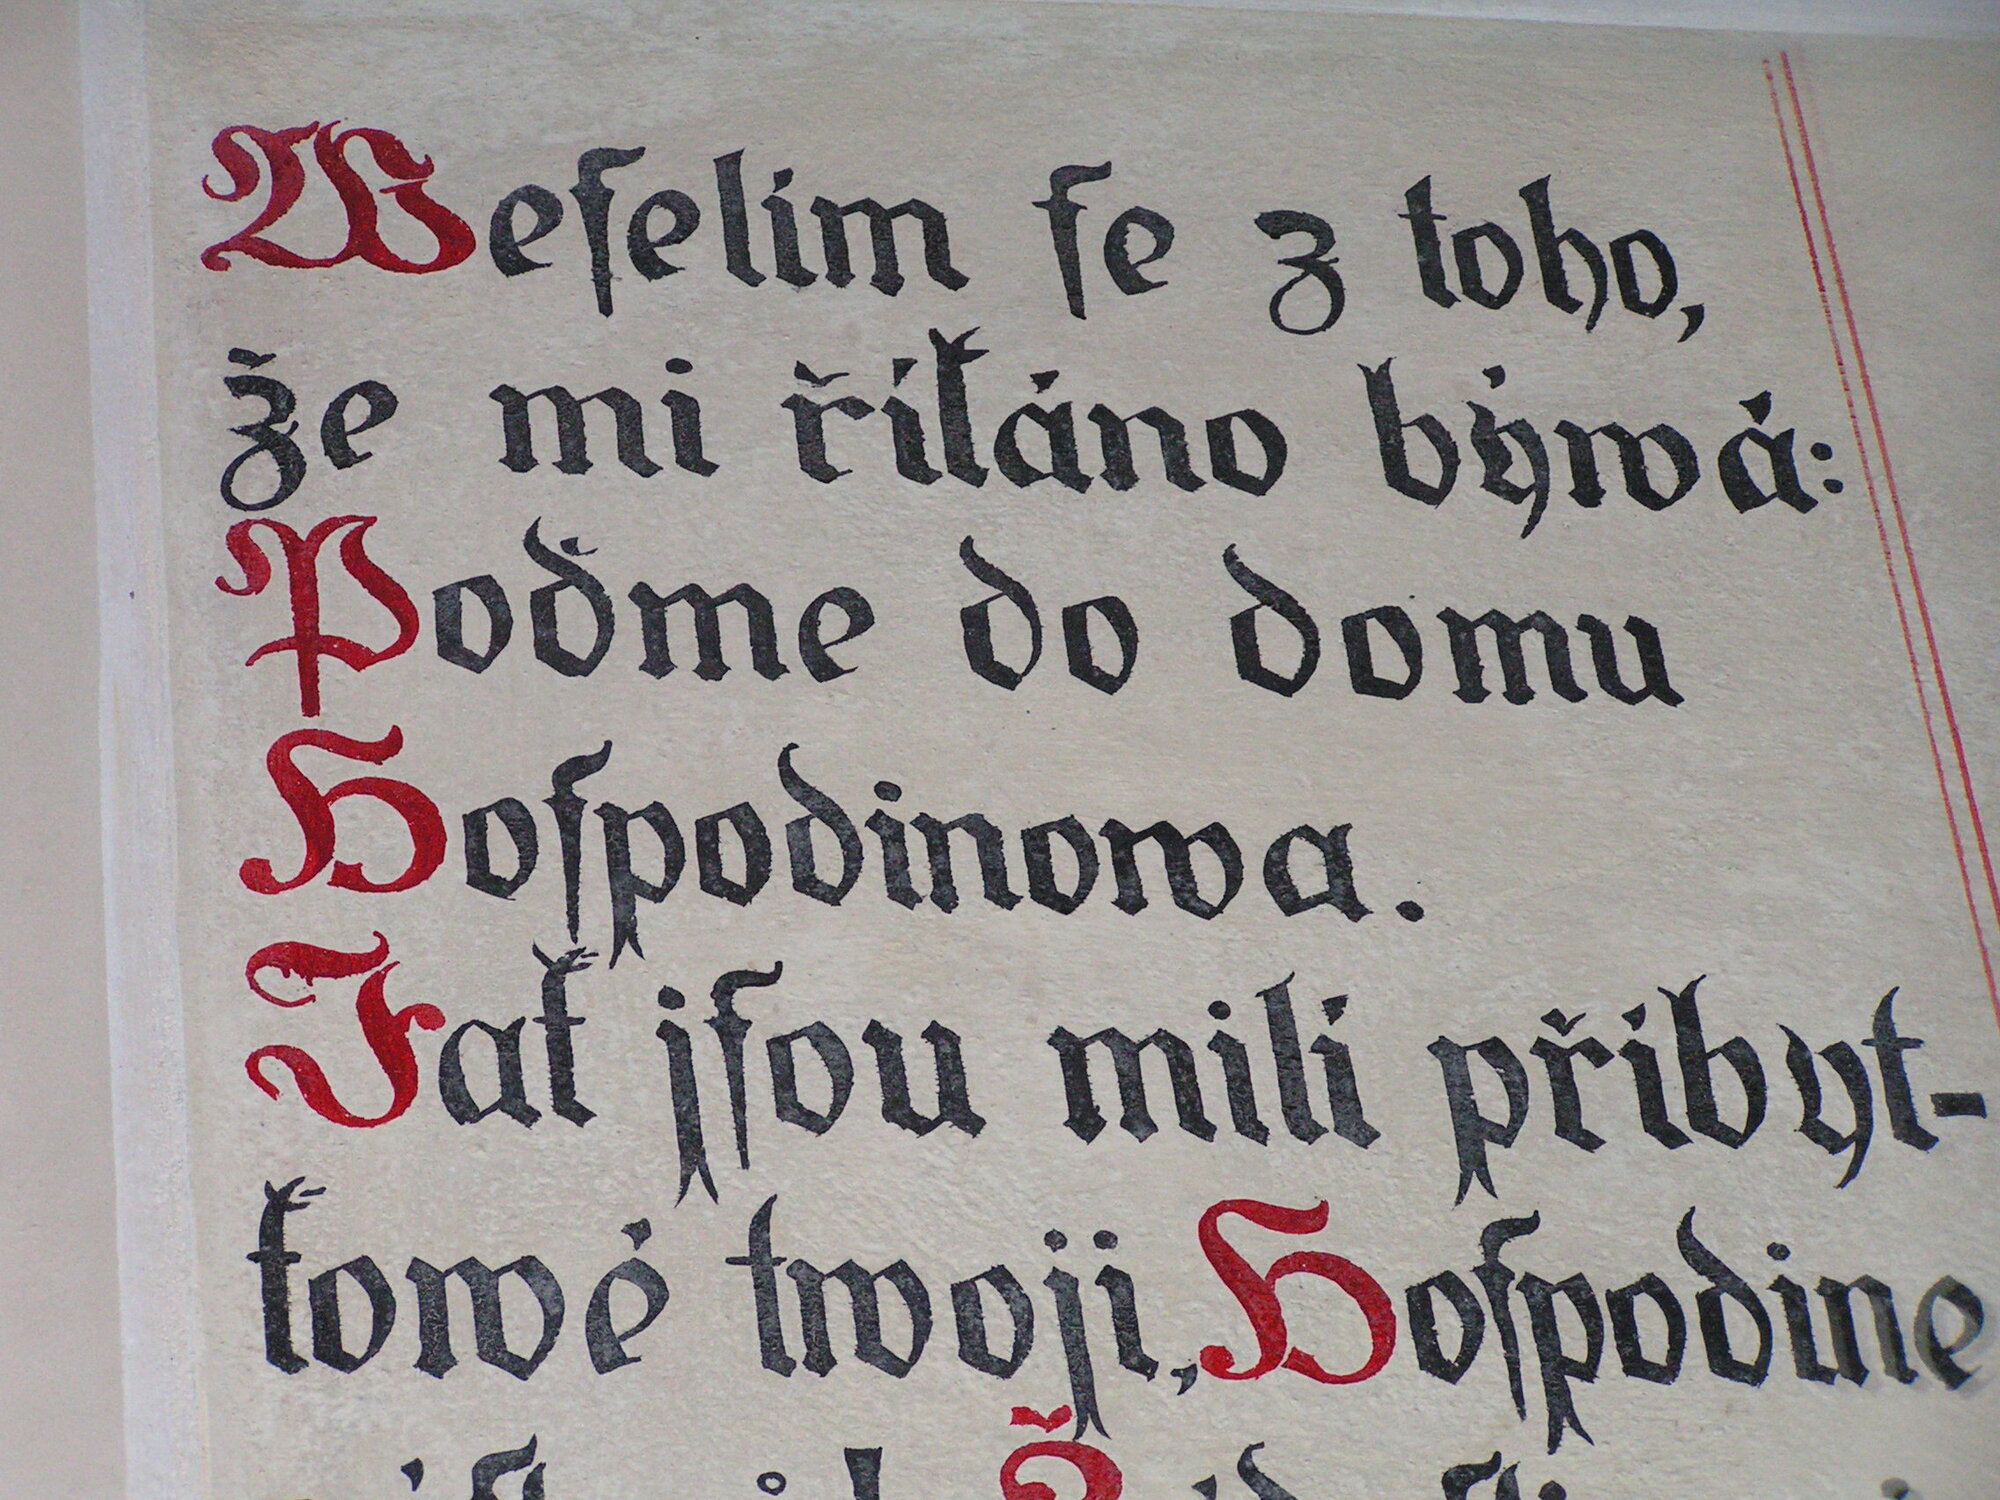 Weſelím ſe z toho,
že mi říkáno býwá:
Poďme do domu
Hoſpodinowa.
Jak jſou milí příbyt-
kowé twoji, Hoſpodine